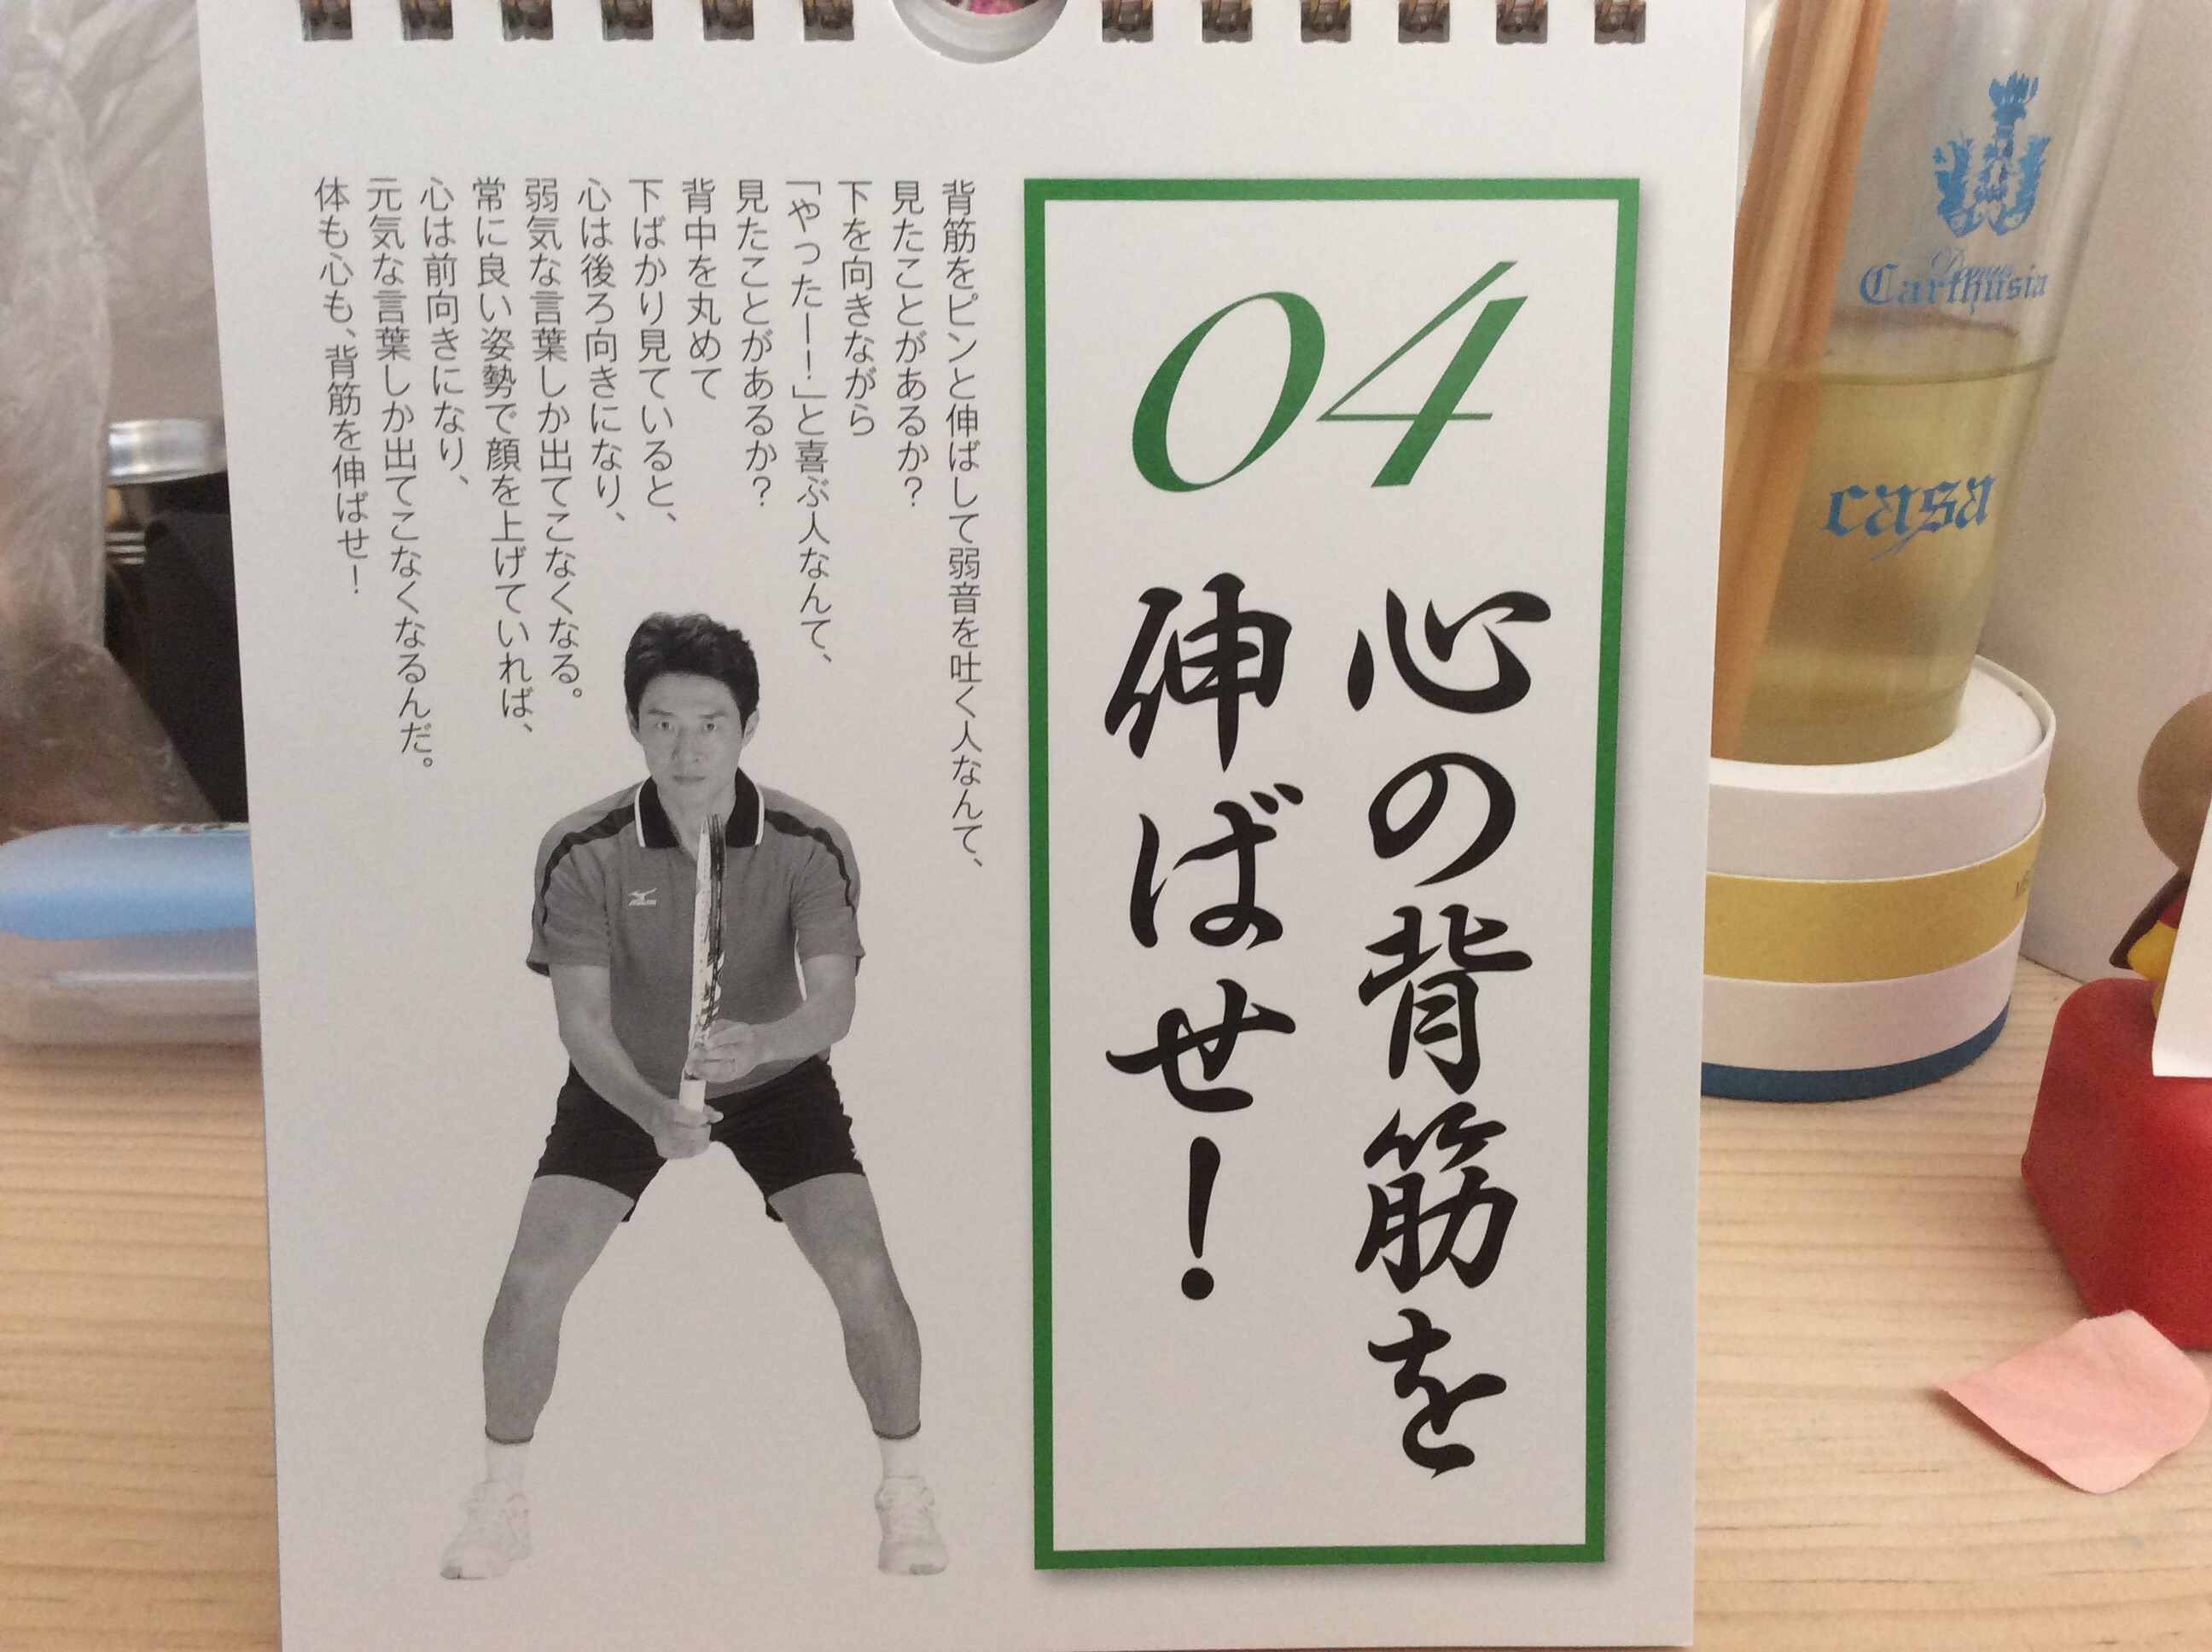 04
心の背筋を
伸ばせ！
背筋をピンと伸ばして弱音を吐く人なんて、
見たことがあるか？
下を向きながら
「やったー！」と喜ぶ人なんて、
見たことがあるか？
背中を丸めて
下ばかり見ていると、
心は後ろ向きになり、
弱気な言葉しか出てこなくなる。
常に良い姿勢で顔を上げていれば、
心は前向きになり、
元気な言葉しか出てこなくなるんだ。
体も心も、背筋を伸ばせ！
Carthusia
casa